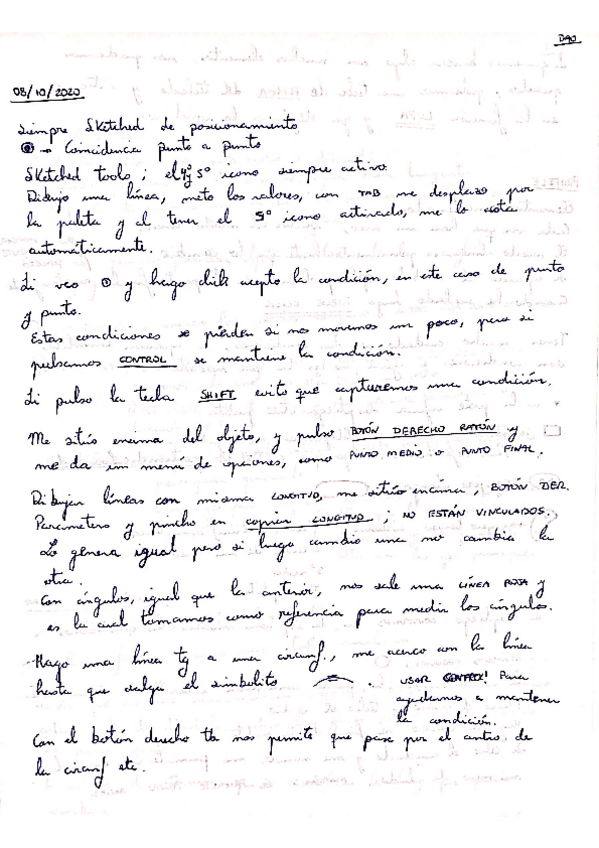 DAO
08/10/2020
Siempre Sketched de posicionamiento
→ Coincidencia punto a punto
Sketched tools; el 4º y 5º icono siempre activo.
Dibujo una línea, meto los valores, con TAB me desplazo por
la paleta y al tener el 5º icono activado, me lo acota
automáticamente.
Si veo ⊙ y hago click acepto la condición, en este caso de punto
y punto.
Estas condiciones se pierden si nos movemos un poco, pero si
pulsamos CONTROL se mantiene la condición.
Si pulso la tecla SHIFT evito que capturemos una condición.
Me sitúo encima del objeto, y pulso BOTÓN DERECHO RATÓN y
me da un menú de opciones, como PUNTO MEDIO o PUNTO FINAL.
Dibujar líneas con misma LONGITUD, me sitúo encima, BOTÓN DER.
Parámetros y pincho en copiar LONGITUD; NO ESTÁN VINCULADOS.
Lo genera igual pero si luego cambio una no cambia la
otra.
Con ángulos, igual que la anterior, nos sale una LÍNEA ROJA y
es la cual tomamos como referencia para medir los ángulos.
Hago una línea tg a una circunf., me acerco con la línea
hasta que salga el simbolito . USAR CONTROL! Para
ayudarnos a mantener
la condición.
Con el botón derecho tb nos permite que pase por el centro de
la circunf etc.